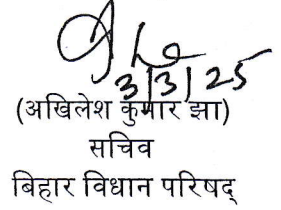 3/3/25
(अखिलेश कुमार झा)
सचिव
बिहार विधान परिषद्